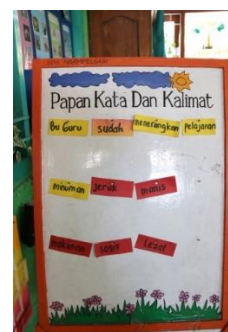 Papan Kata Dan Kalimat
Bu Guru sudah menerangkan pelajaran
minuman jeruk manis
makanan sayur lezat